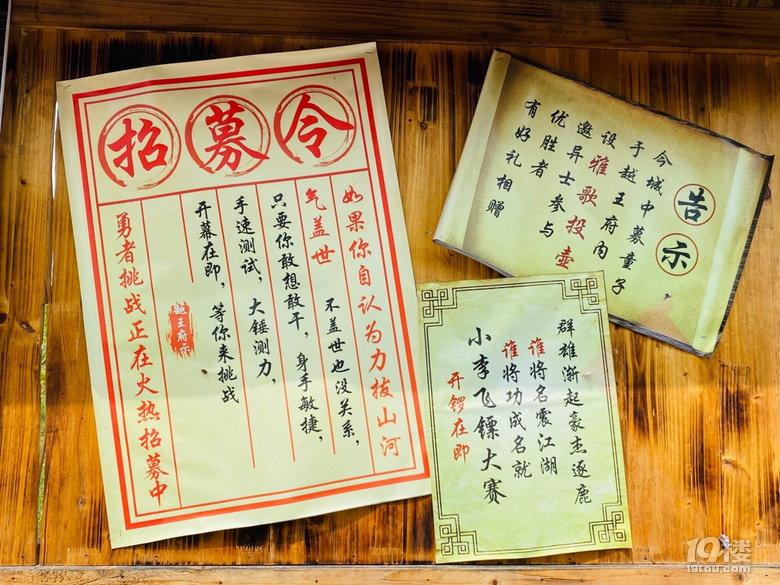 令募招
如果你自认为力拔山河
气盖世
不盖世也没关系，
只要你敢想敢干，身手敏捷，
手速测试，大锤测力，
开幕在即，等你来挑战
越王府示
勇者挑战正在火热招募中
告示
今城中募童子
于越王府内
设雅歌投壶
邀异士参与
优胜者
有好礼相赠
群雄渐起豪杰逐鹿
谁将名震江湖
谁将功成名就
小李飞镖大赛
开锣在即
19楼
19lou.com